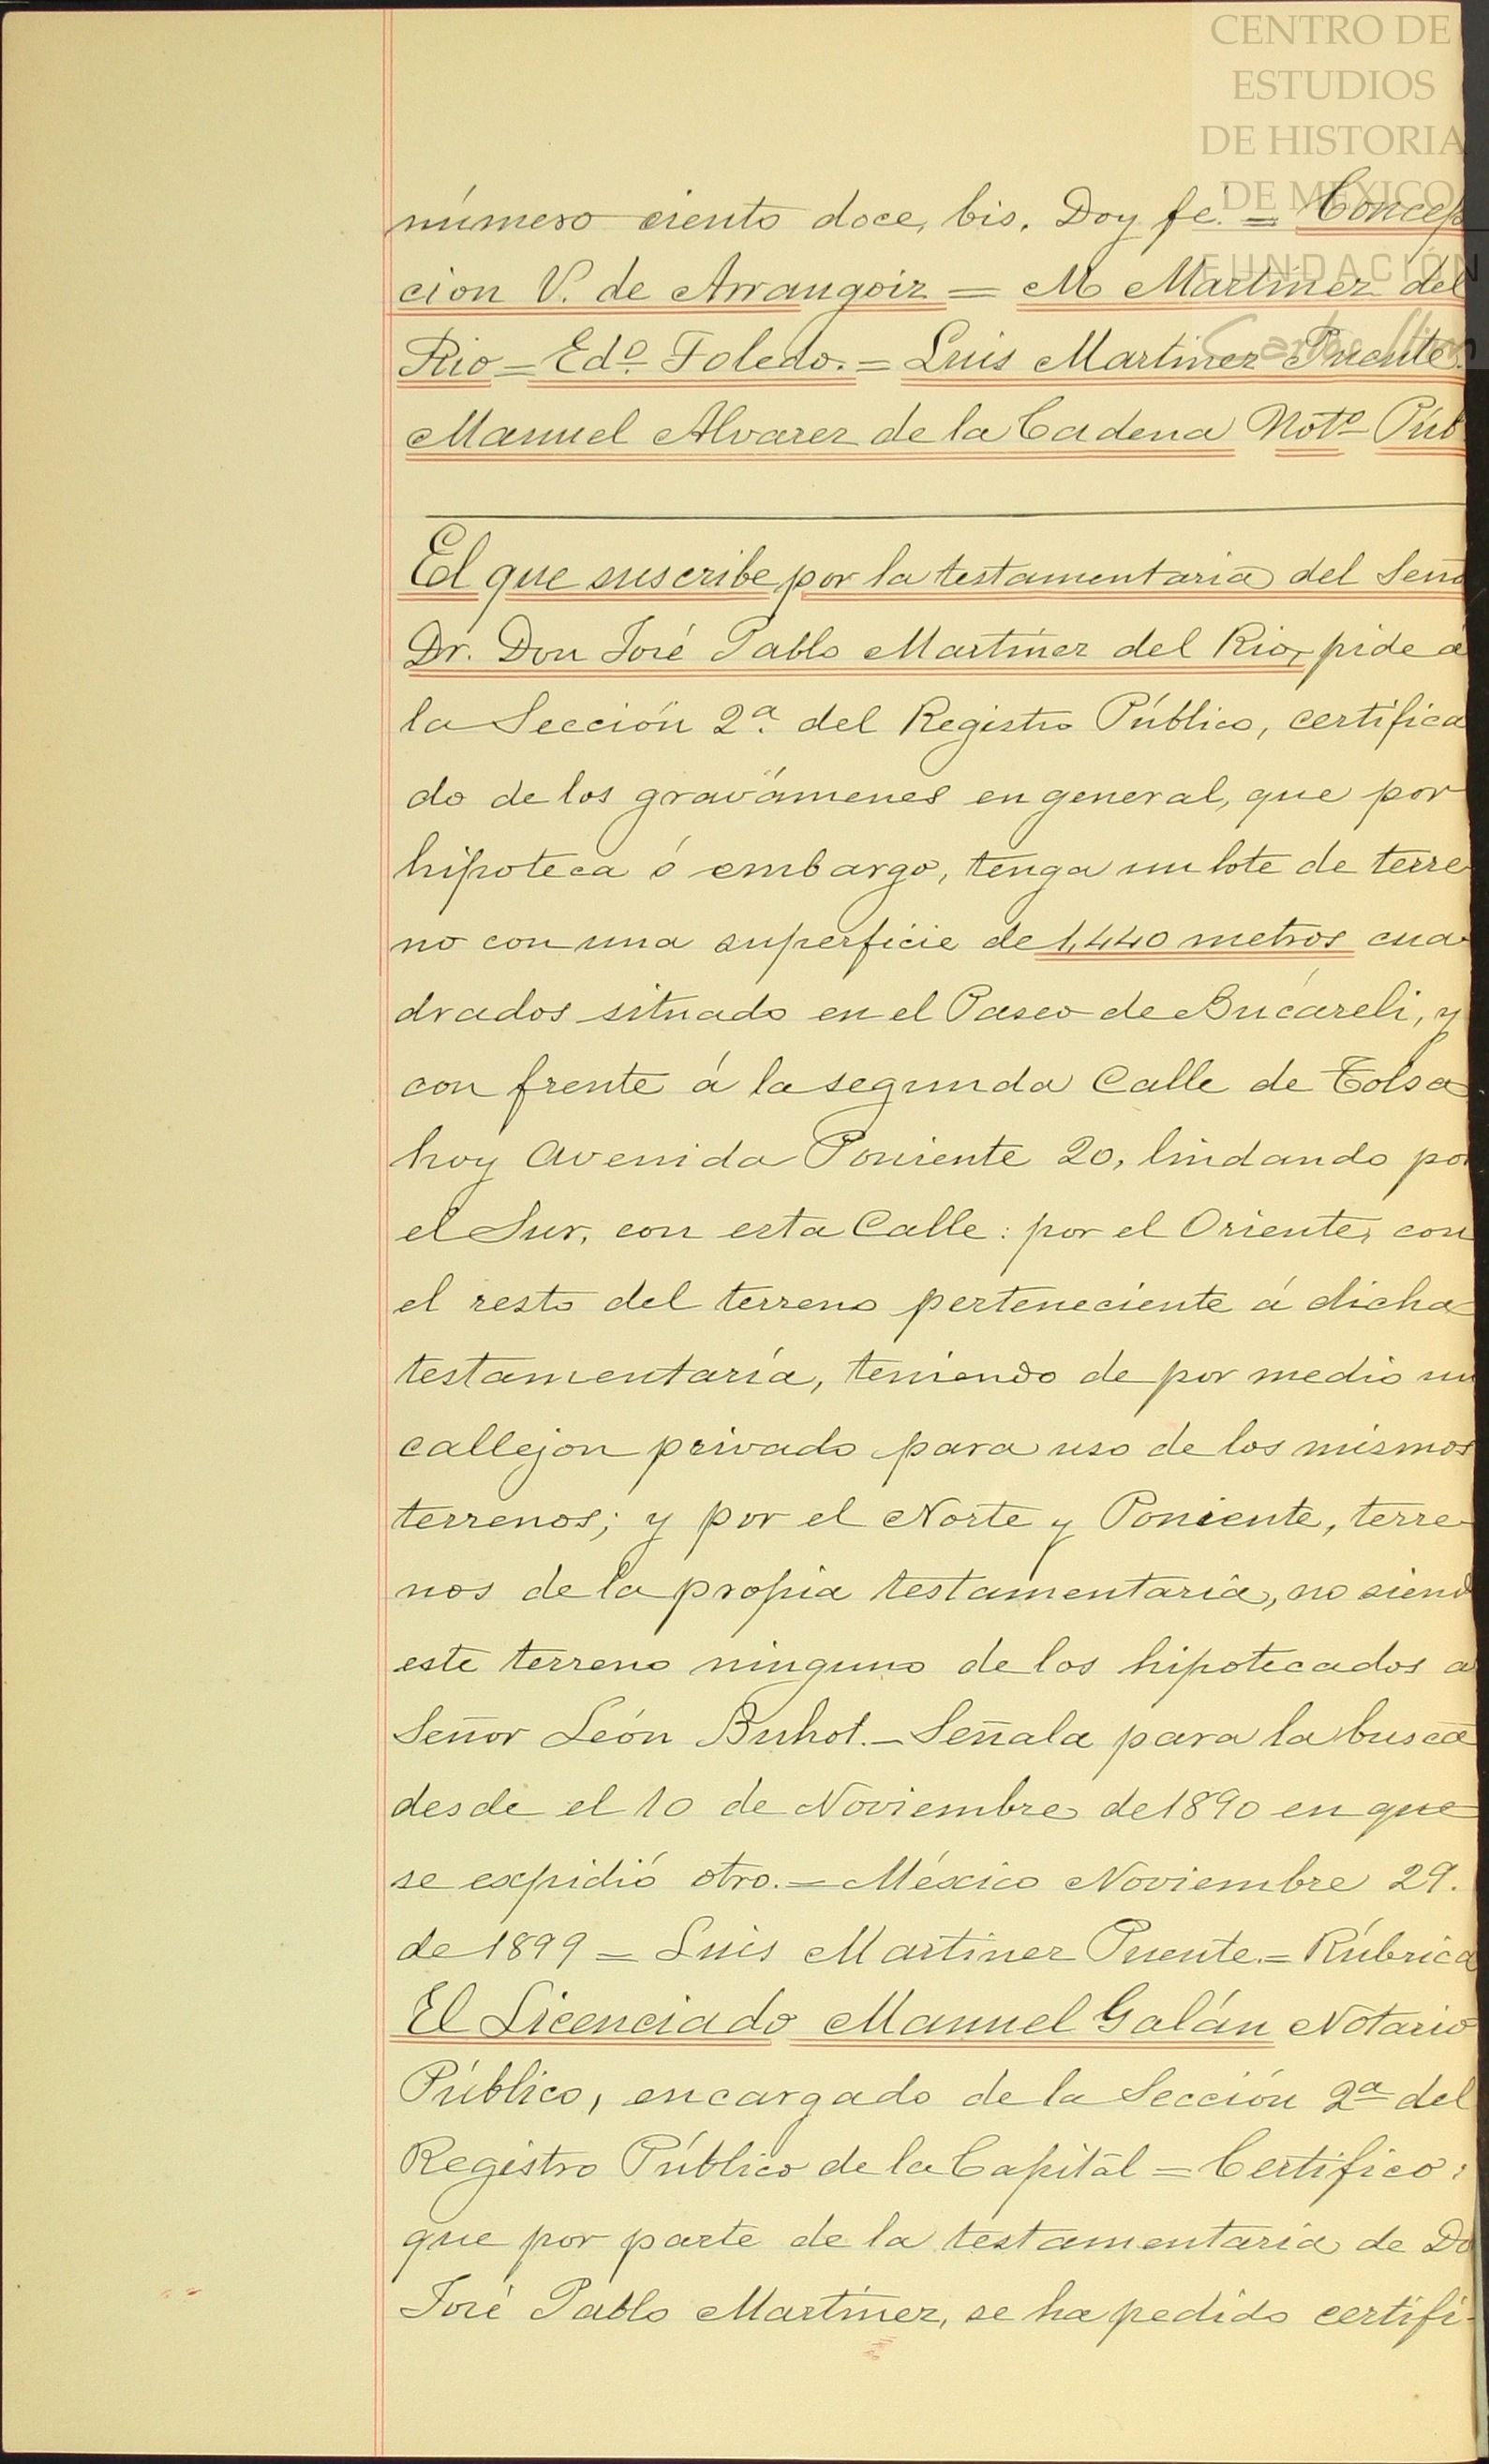 CENTRO DE
ESTUDIOS
DE HISTORIA
DE MÉXICO
FUNDACIÓN
Carlos Slim
número ciento doce, bis. Doy fe. = Concep
cion V. de Arrangoiz = M Martinez del
Rio = Edo. Toledo. = Luis Martinez Puente.
Manuel Alvarez de la Cadena Noto. Púb
El que suscribe por la testamentaria del Seño
Dr. Don José Pablo Martínez del Rio, pide á
la Sección 2ª. del Registro Público, certifica
do de los gravámenes en general, que por
hipoteca ó embargo, tenga un lote de terre
no con una superficie de 1,440 metros cua
drados situado en el Paseo de Bucareli, y
con frente á la segunda Calle de Tolsa
hoy Avenida Poniente 20, lindando por
el Sur, con esta Calle: por el Oriente, con
el resto del terreno perteneciente á dicha
testamentaría, teniendo de por medio un
callejon privado para uso de los mismos
terrenos; y por el Norte y Poniente, terre
nos de la propia testamentaría, no siend
este terreno ninguno de los hipotecados a
Señor León Buhot. – Señala para la busca
desde el 10 de Noviembre de 1890 en que
se expidió otro. = México Noviembre 29.
de 1899 = Luis Martinez Puente. = Rúbrica
El Licenciado Manuel Galán Notario
Público, encargado de la Sección 2ª del
Registro Público de la Capital = Certifico:
que por parte de la testamentaría de Do
José Pablo Martínez, se ha pedido certifi-